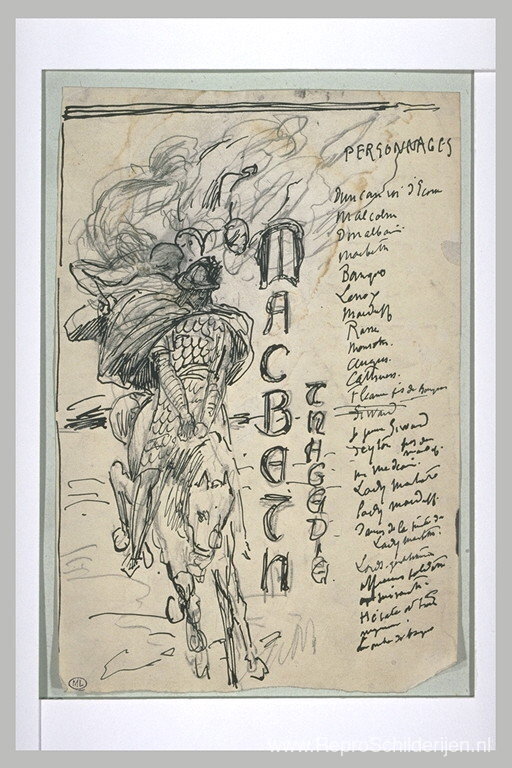 MACBETH
TRAGEDIE
PERSONNAGES
Duncan roi d'Ecosse
Malcolm
Donalbain
Macbeth
Banquo
Lenox
Macduff
Rosse
Menteth
Angus
Cathness
Fleance fils de Banquo
Siward
le jeune Siward
Seyton
un medecin
Lady Macbeth
Lady Macduff
Dames de la suite de
Lady Macbeth
Lords
officiers soldats
Hécate et trois
ML
www.ReproSchilderijen.nl